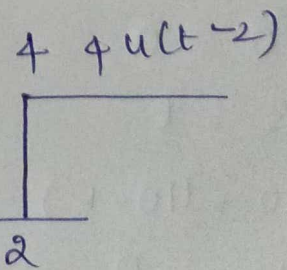 4 4u(t-2)
2